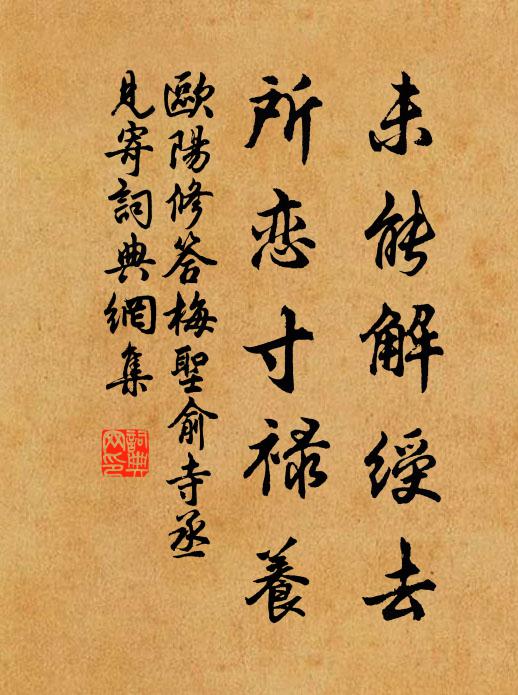 未能解绶去
所恋寸禄養
歐陽修答梅聖俞寺丞
見寄詞典網集
詞典網印